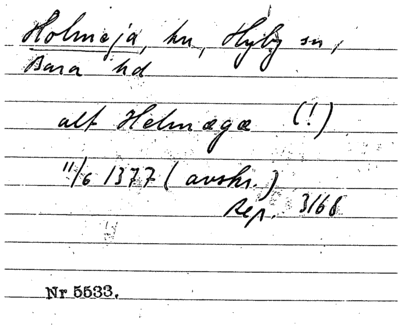 Holmeja, hn, Hyby sn,
Bara hd
alt Helmægæ (!)
11/6 1377 (avskr.)
Rep. 3168
Nr 5533.